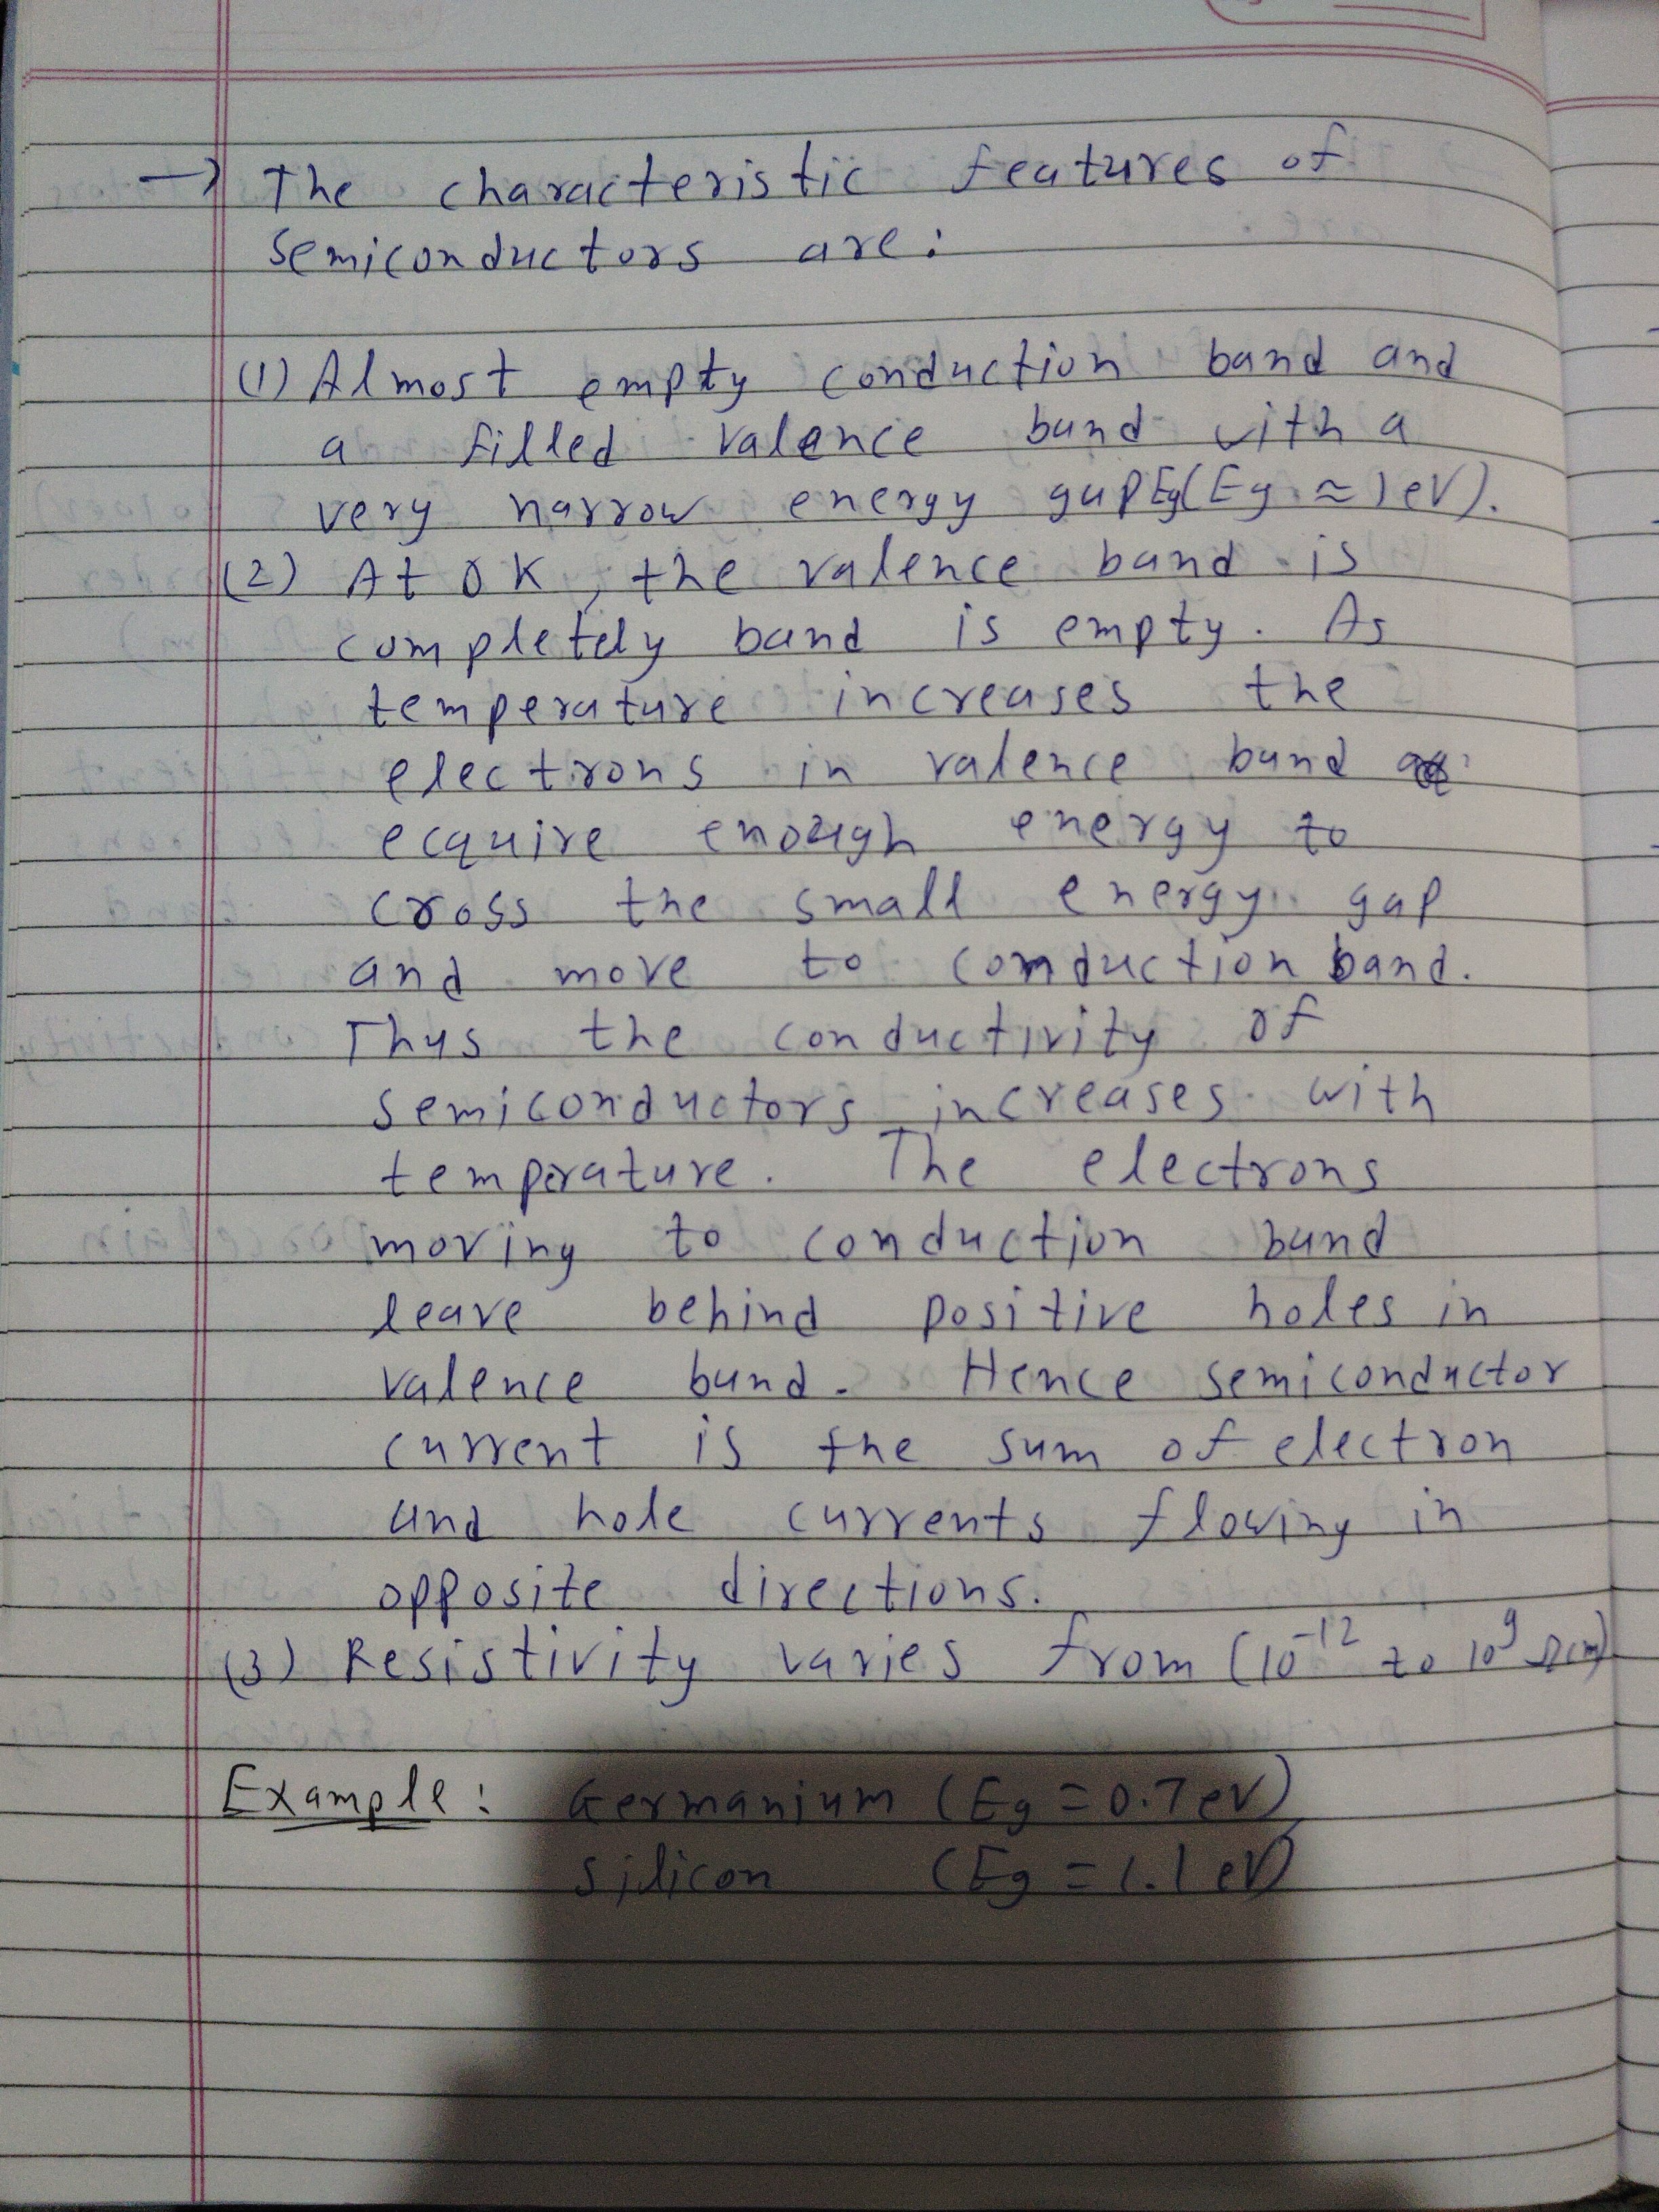 → The characteristic features of
semiconductors are:
(1) Almost empty conduction band and
a filled valence band with a
very narrow energy gap Eg (Eg ≈ 1 eV).
(2) At 0 K, the valence band is
completely band is empty. As
temperature increases the
electrons in valence band
ecquire enough energy to
cross the small energy gap
and move to conduction band.
Thus the conductivity of
semiconductors increases with
temperature. The electrons
moving to conduction band
leave behind positive holes in
valence band. Hence semiconductor
current is the sum of electron
and hole currents flowing in
opposite directions.
(3) Resistivity varies from (10⁻¹² to 10⁹ Ωcm)
Example: Germanium (Eg = 0.7 eV)
silicon (Eg = 1.1 eV)